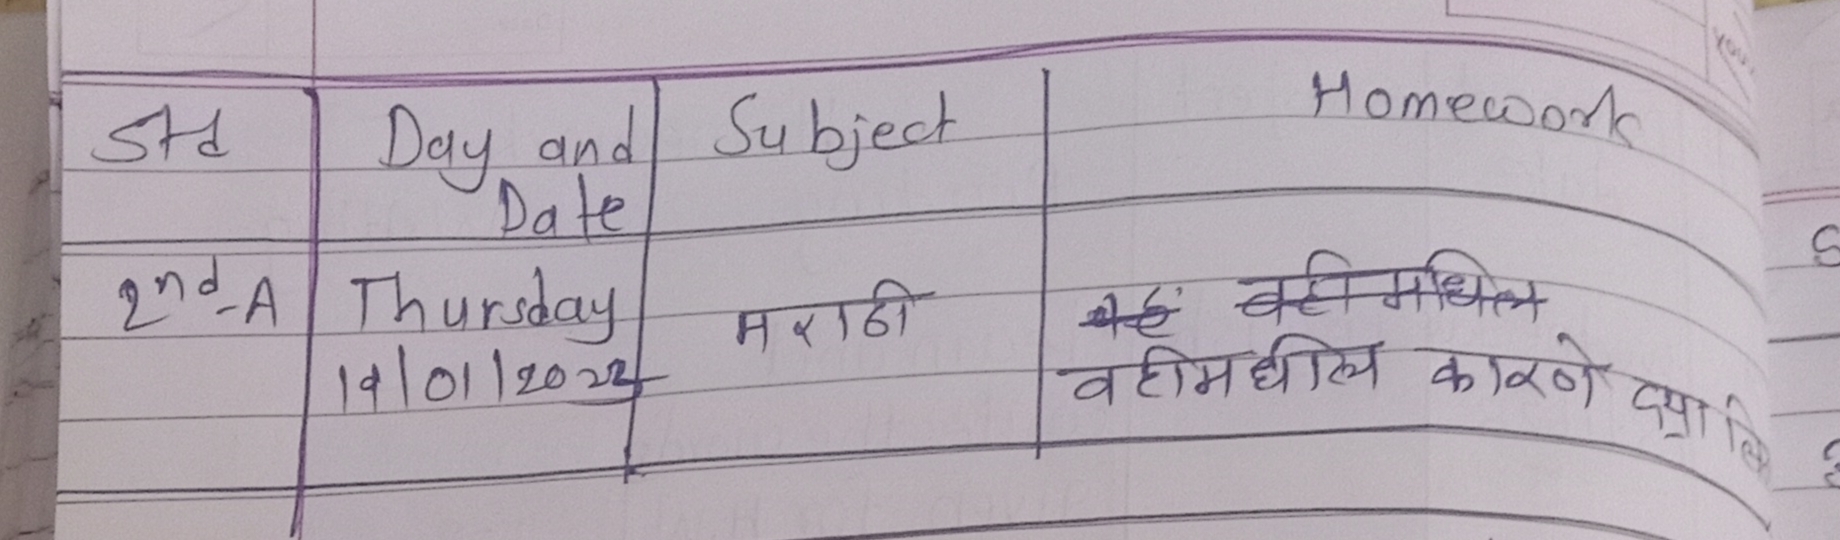 Std Day and Date Subject Homework
2nd-A Thursday मराठी
19/01/2022 वहीमधील कारणे द्या